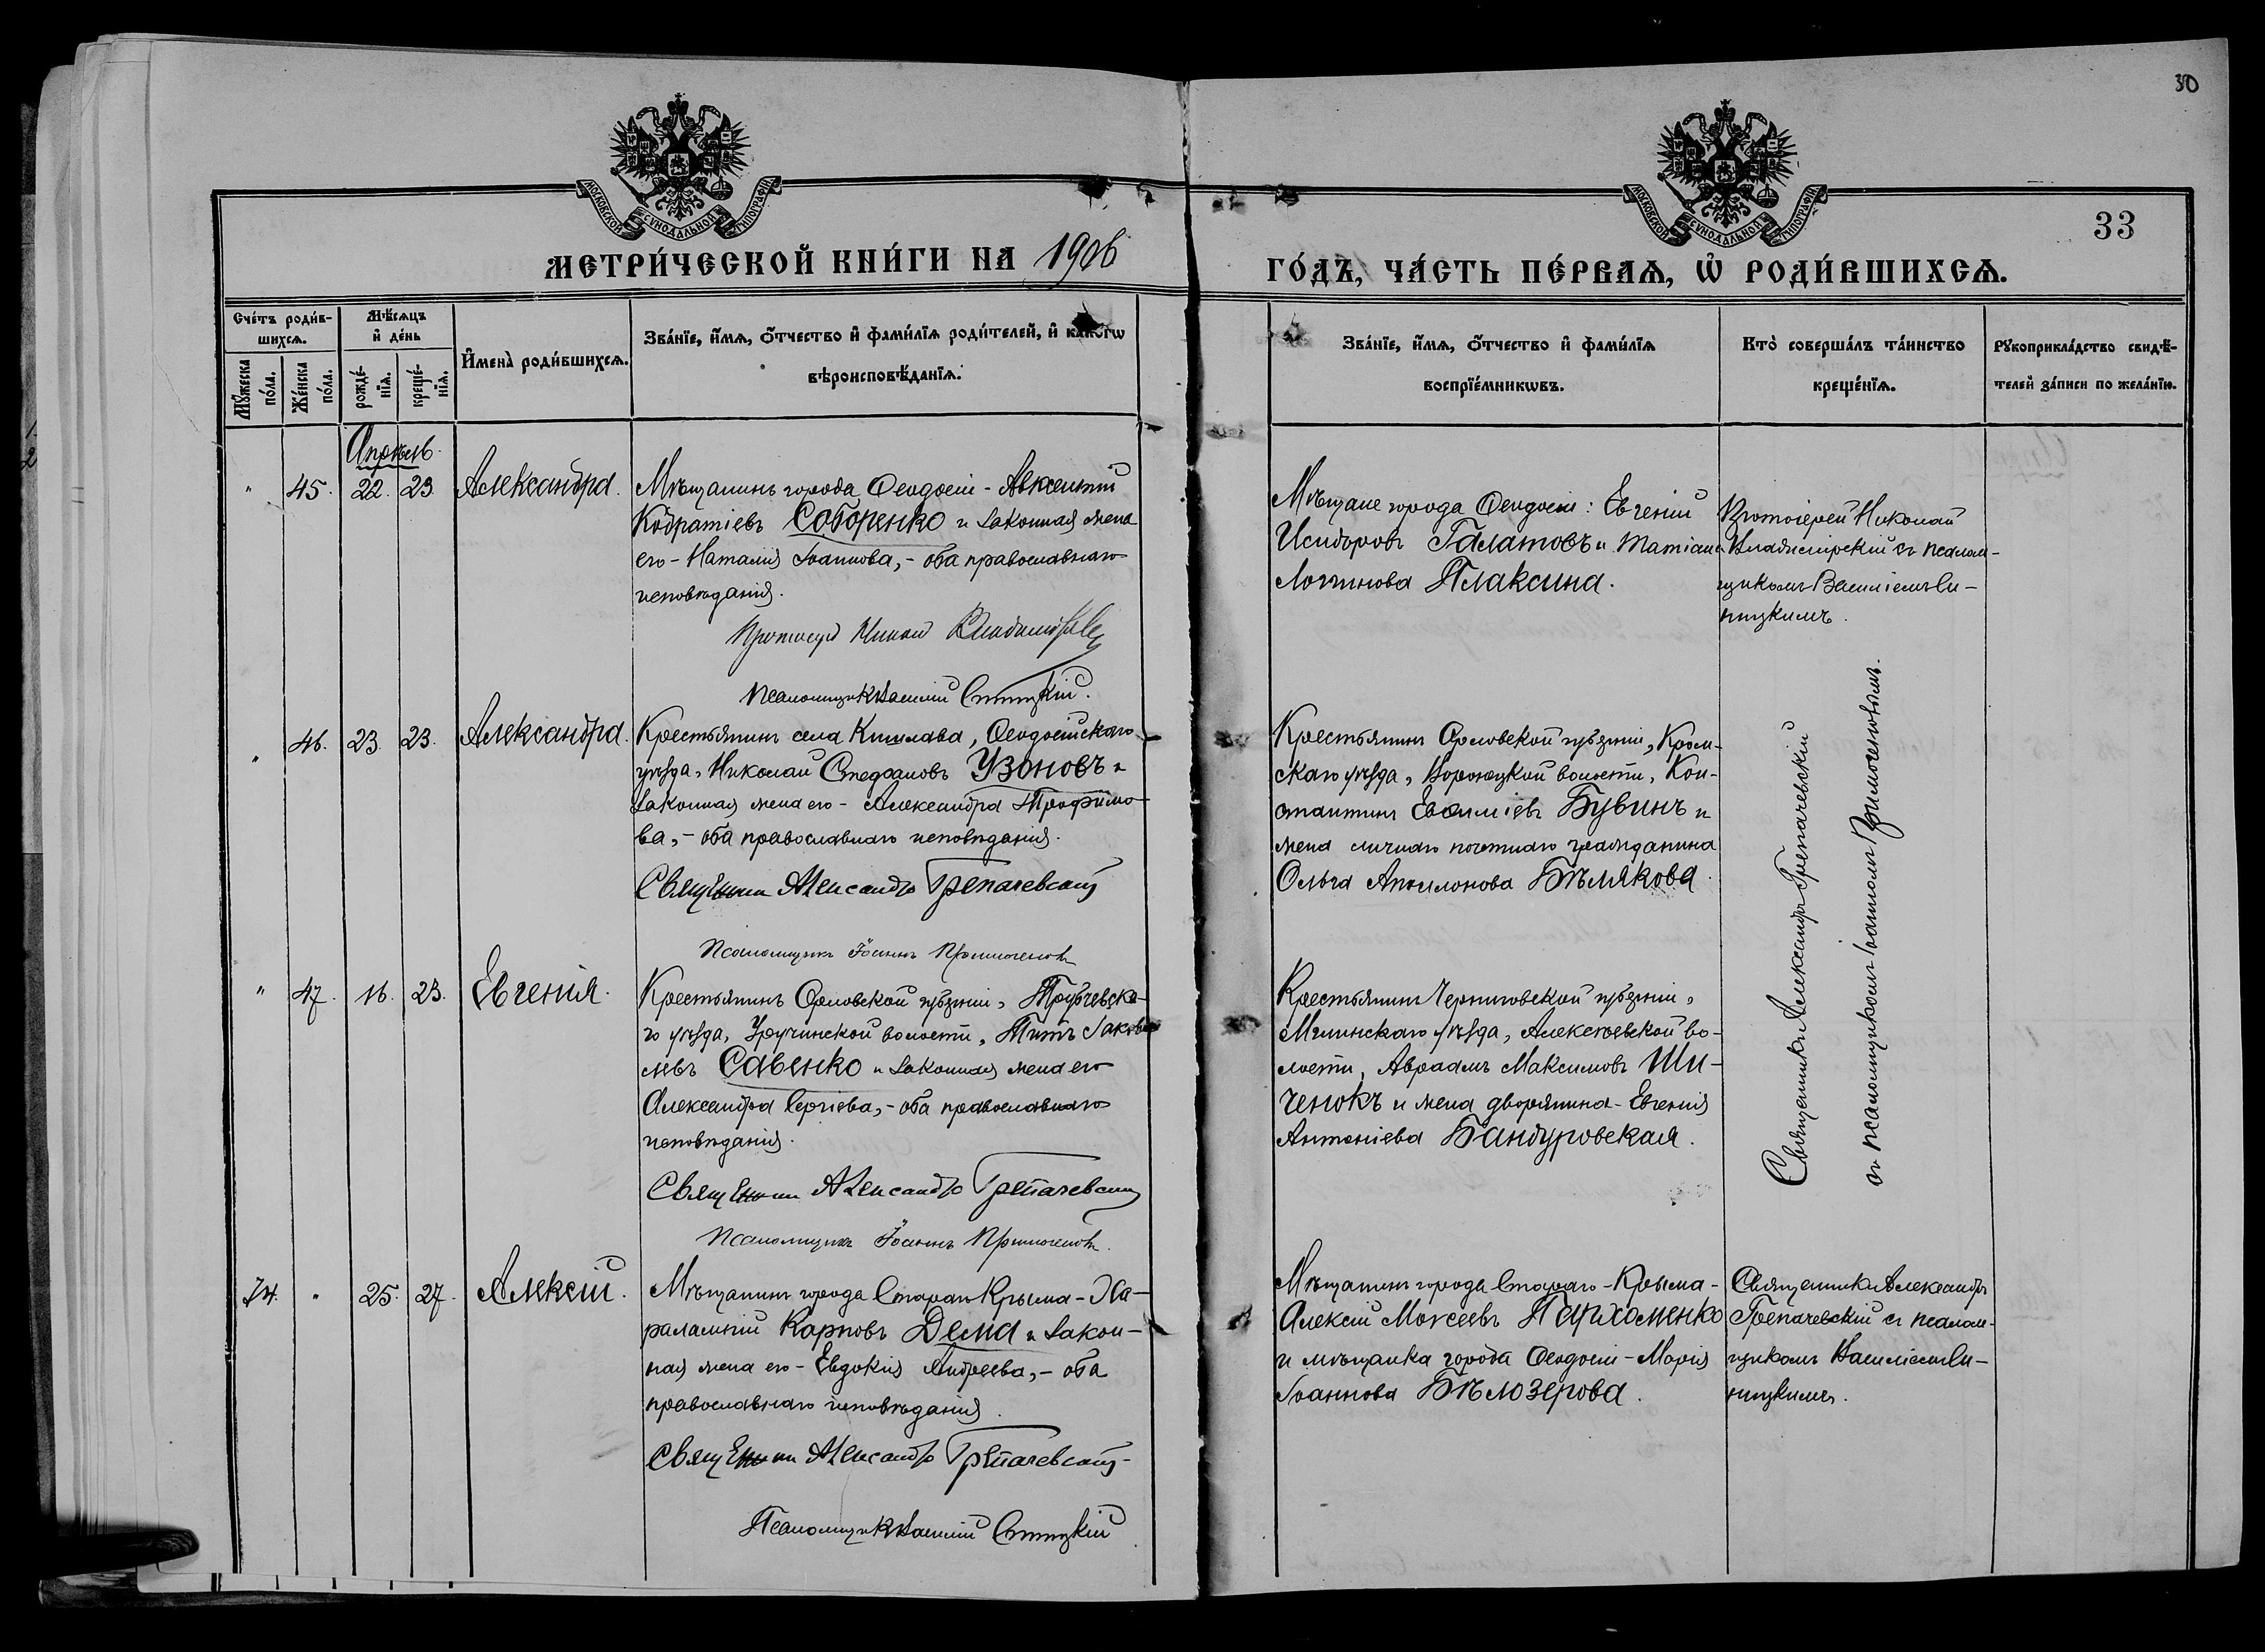 30
МОСКОВСКОЙ СУНОДАЛЬНОЙ ТИПОГРАФІИ
МОСКОВСКОЙ СУНОДАЛЬНОЙ ТИПОГРАФІИ
33
МЕТРИ́ЧЕСКОЙ КНИ́ГИ НА 1906
ГО́ДЪ, ЧА́СТЬ ПЕ́РВАѦ, Ѡ҆ РОДИ́ВШИХСѦ.
Сче́тъ роди́в-
шихсѧ.
Мѣ́сѧцъ
и҆ де́нь
И҆мена̀ роди́вшихсѧ.
Зва́нїе, и҆́мѧ, ѻ҆́тчество и҆ фамѝлїѧ роди́телей, и҆ како́гѡ
вѣроисповѣ́данїѧ.
Мꙋ́жеска
по́ла.
Же́нска
по́ла.
рожде́-
нїѧ.
креще́-
нїѧ.
Зва́нїе, и҆́мѧ, ѻ҆́тчество и҆ фамѝлїѧ
воспрїе́мникѡвъ.
Кто̀ соверша́лъ та́инство
креще́нїѧ.
Рꙋкоприкла́дство свидѣ́-
телей за́писи по жела́нїю.
Апрѣль.
" 45. 22. 23. Александра.
Мѣщанинъ города Ѳеодосіи - Авксентій
Кодратіевъ Соборенко и законная жена
его - Наталія Іоаннова, - оба православнаго
исповѣданія.
Протоіерей Николай Владимірскій
Псаломщикъ Василій Синицкій.
Мѣщане города Ѳеодосіи: Евгеній
Исидоровъ Галатовъ и Татіана
Логгинова Плаксина.
Протоіерей Николай
Владимірскій съ псалом-
щикомъ Василіемъ Си-
ницкимъ.
" 46. 23. 23. Александра.
Крестьянинъ села Кишлава, Ѳеодосійскаго
уѣзда, Николай Стефановъ Узоновъ и
законная жена его - Александра Трофимо-
ва, - оба православнаго исповѣданія.
Священникъ Александръ Грепачевскій
Псаломщикъ Іоаннъ Примогеновъ
Крестьянинъ Орловской губерніи, Кром-
скаго уѣзда, Короецкой волости, Кон-
стантинъ Евѳиміевъ Бувинъ и
жена личнаго почетнаго гражданина
Ольга Аполлонова Бѣлякова.
Священникъ Александръ Грепачевскій
съ псаломщикомъ Іоанномъ Примогеновымъ.
" 47. 16. 23. Евгенія.
Крестьянинъ Орловской губерніи, Трубчевска-
го уѣзда, Уручинской волости, Титъ Іаковл-
левъ Савенко и законная жена его
Александра Сергіева, - оба православнаго
исповѣданія.
Священникъ Александръ Грепачевскій
Псаломщикъ Іоаннъ Примогеновъ.
Крестьянинъ Черниговской губерніи,
Мглинскаго уѣзда, Алексѣевской во-
лости, Авраамъ Максимовъ Ши-
ченокъ и жена дворянина - Евгенія
Антоніева Бандуровская.
74. " 25. 27. Алексій.
Мѣщанинъ города Стараго Крыма - Ха-
ралампій Карповъ Дема и закон-
ная жена его - Евдокія Андреева, - оба
православнаго исповѣданія.
Священникъ Александръ Грепачевскій
Псаломщикъ Василій Синицкій
Мѣщанинъ города Стараго-Крыма -
Алексій Моѵсеевъ Пархоменко
и мѣщанка города Ѳеодосіи - Марія
Іоаннова Бѣлозерова.
Священникъ Александръ
Грепачевскій съ псалом-
щикомъ Василіемъ Си-
ницкимъ.